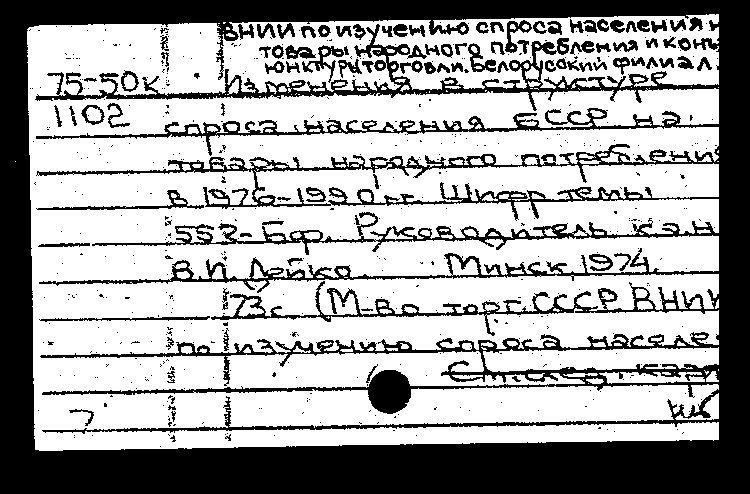 ВНИИ по изучению спроса населения н
товары народного потребления и конъ
юнктуры торговли. Белорусский филиал.
75-50к Изменения в структуре
1102 спроса населения БССР на
товары народного потребления
в 1976-1990 гг. Шифр темы
552-Бф. Руководитель к.э.н
В.И. Лейко. Минск, 1974.
73с (М-во торг. СССР ВНИИ
по изучению спроса населе
См. след. карт
7